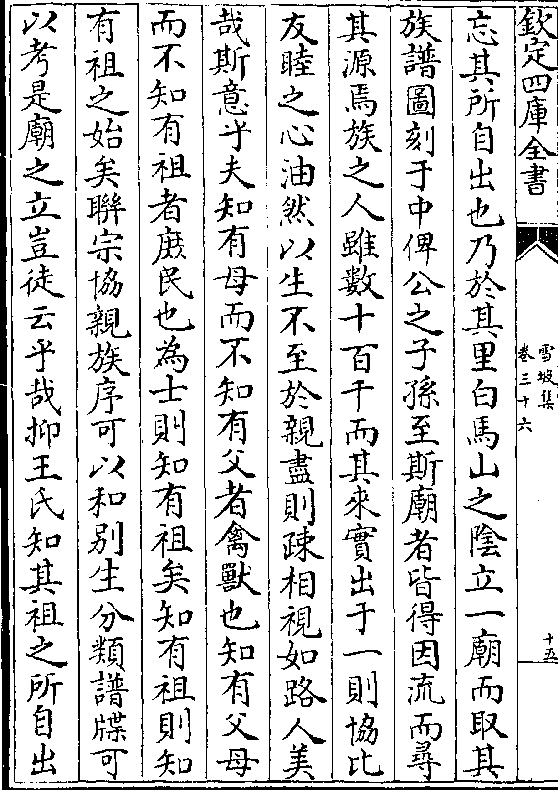 欽定四庫全書
雪坡集
卷三十六
十五
忘其所自出也乃於其里白馬山之陰立一廟而取其
族譜圖刻于中俾公之子孫至斯廟者皆得因流而尋
其源焉族之人雖數十百千而其來實出于一則協比
友睦之心油然以生不至於親盡則疎相視如路人美
哉斯意乎夫知有母而不知有父者禽獸也知有父母
而不知有祖者庶民也為士則知有祖矣知有祖則知
有祖之始矣聨宗協親族序可以和别生分類譜牒可
以考是廟之立豈徒云乎哉抑王氏知其祖之所自出